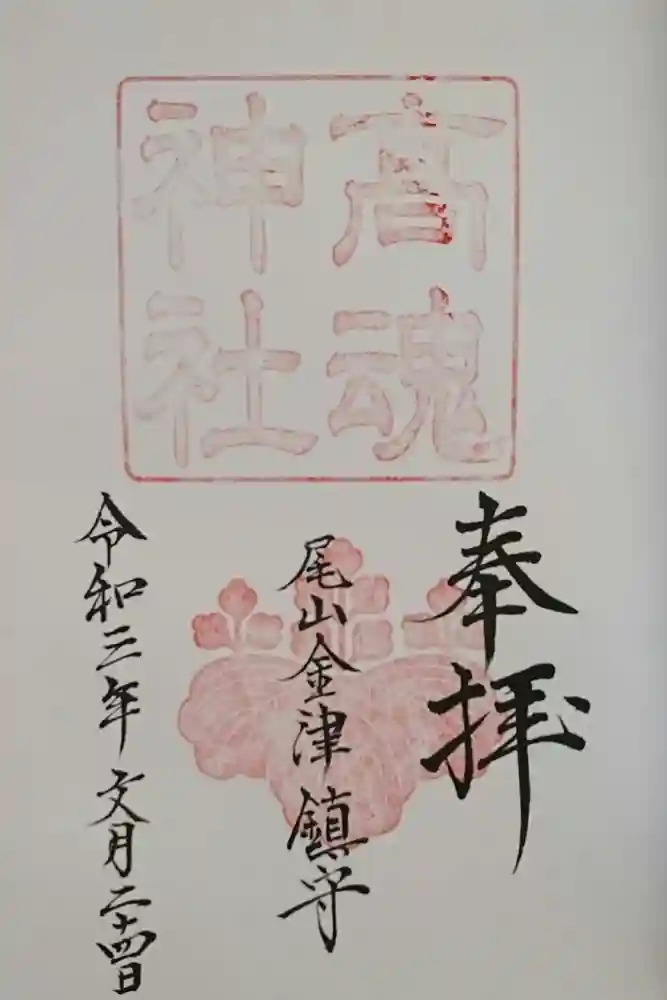 髙魂
神社
奉拝
尾山金津鎮守
令和三年文月二十四日